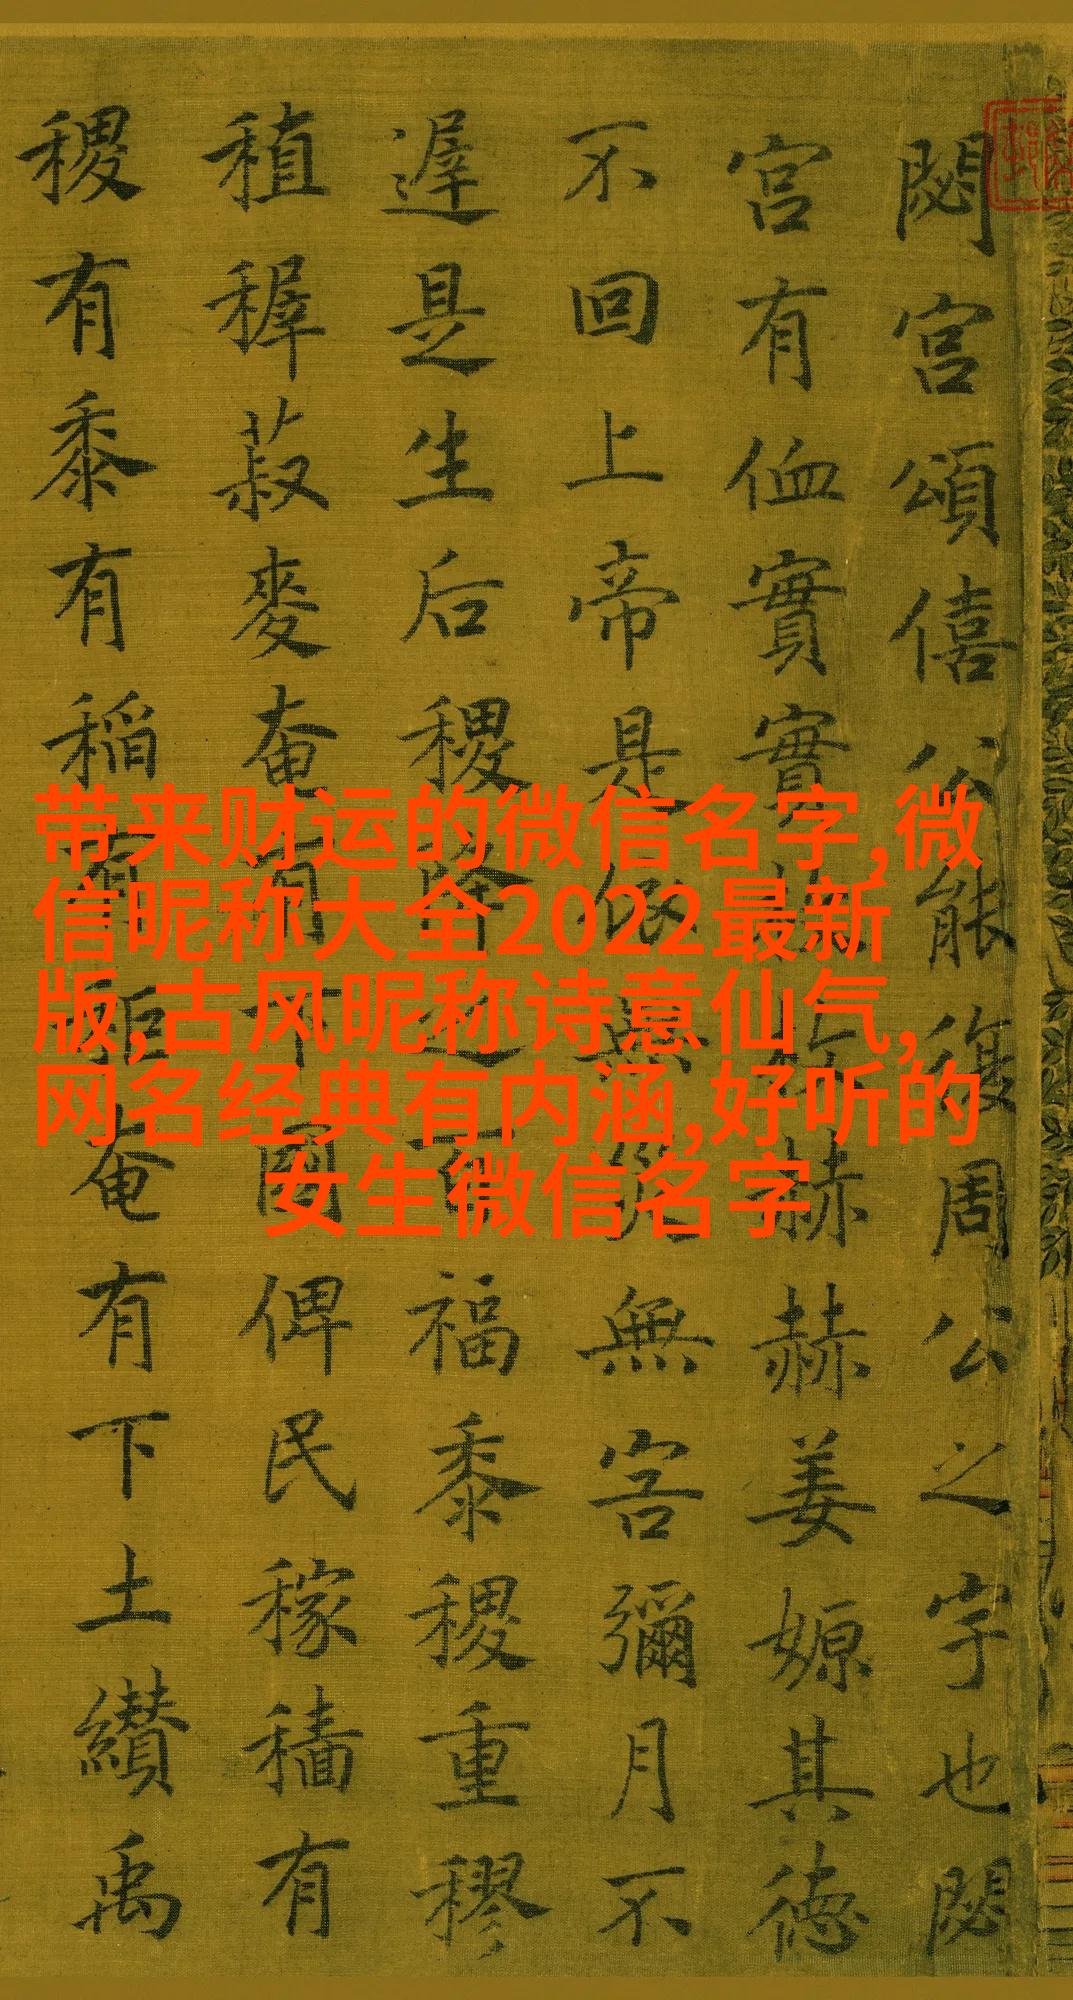 閟宮頌僖公能復周公之宇也閟
宮有侐實實枚枚赫赫姜嫄其德
不回上帝是依無災無害彌月不
遟是生后稷降之百福黍稷重穋
稙稺菽麥奄有下國俾民稼穡有
稷有黍有稻有秬奄有下土纘禹
带来财运的微信名字,微
信昵称大全2022最新
版,古风昵称诗意仙气,
网名经典有内涵,好听的
女生微信名字